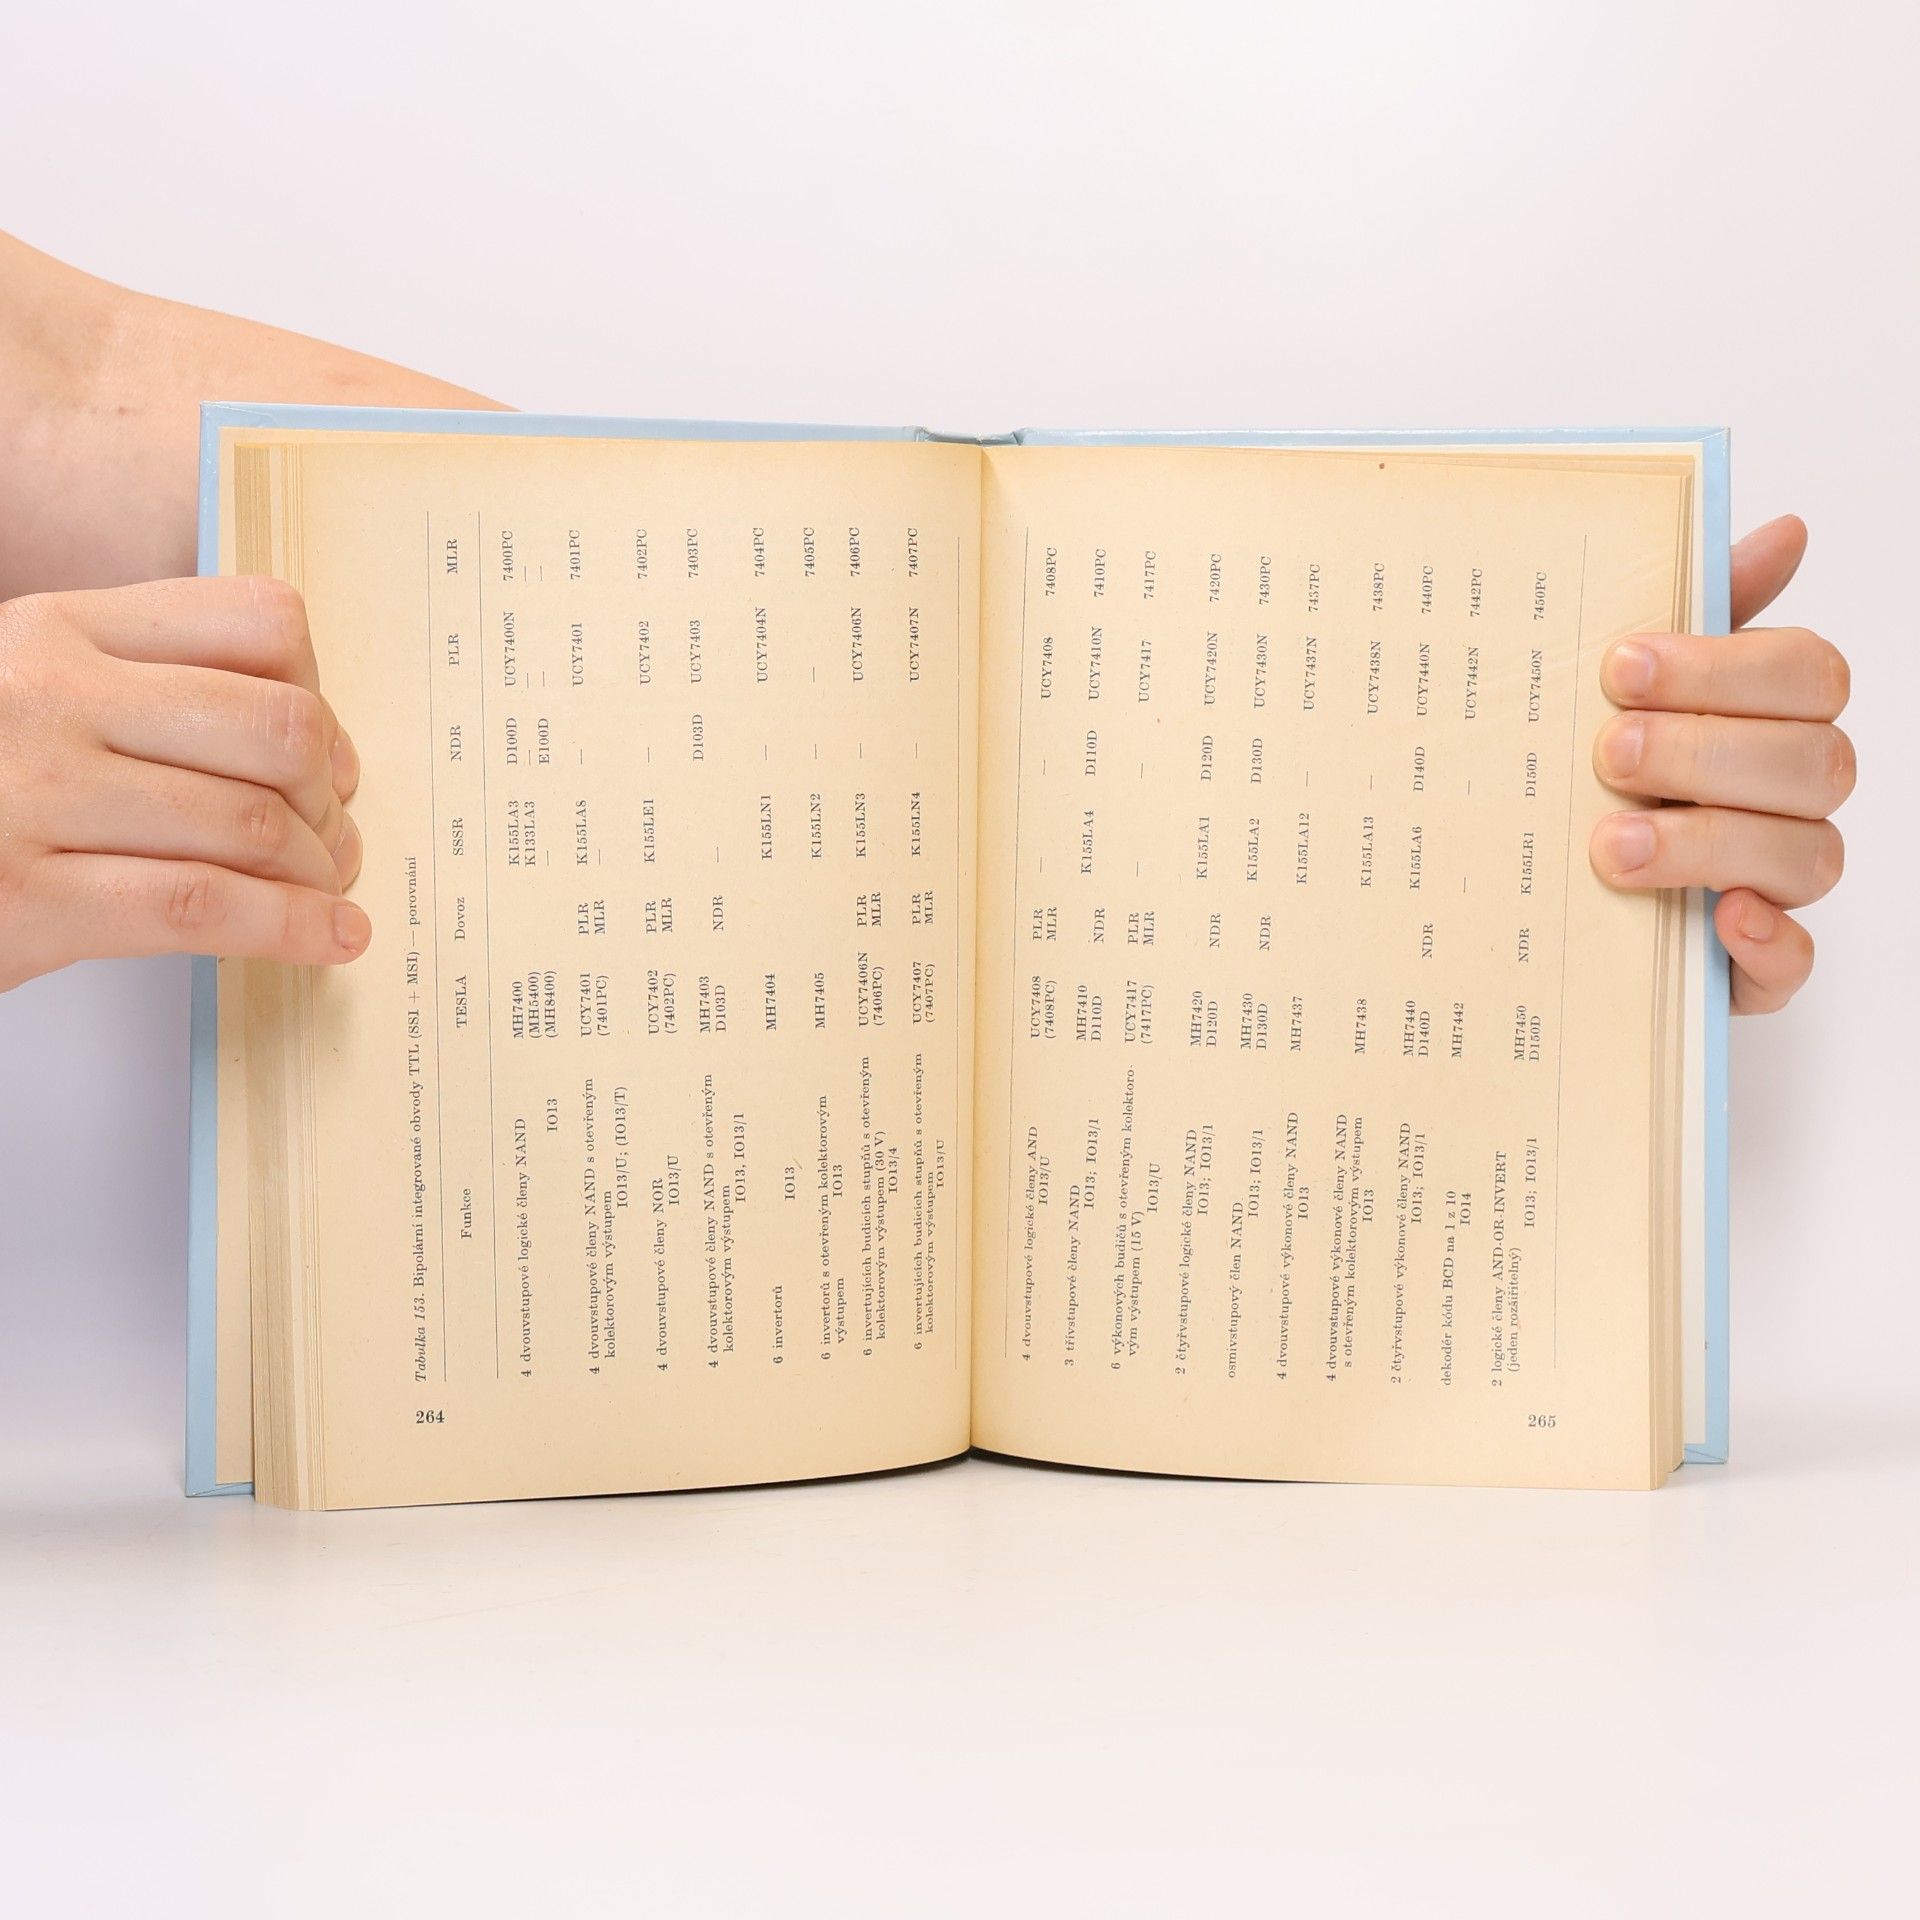 264
Tabulka 153. Bipolární integrované obvody TTL (SSI + MSI) — porovnání
Funkce TESLA Dovoz SSSR NDR PLR MLR
4 dvouvstupové logické členy NAND MH7400 K155LA3 D100D UCY7400N 7400PC
(MH5400) K133LA3 — — —
IO13 (MH8400) — E100D — —
4 dvouvstupové členy NAND s otevřeným UCY7401 PLR K155LA8 — UCY7401 7401PC
kolektorovým výstupem (7401PC) MLR —
IO13/U; (IO13/T)
4 dvouvstupové členy NOR UCY7402 PLR K155LE1 — UCY7402 7402PC
IO13/U (7402PC) MLR
4 dvouvstupové členy NAND s otevřeným MH7403 NDR — D103D UCY7403 7403PC
kolektorovým výstupem D103D
IO13, IO13/1
6 invertorů MH7404 K155LN1 — UCY7404N 7404PC
IO13
6 invertorů s otevřeným kolektorovým MH7405 K155LN2 — — 7405PC
výstupem IO13
6 invertujících budicích stupňů s otevřeným UCY7406N PLR K155LN3 — UCY7406N 7406PC
kolektorovým výstupem (30 V) (7406PC) MLR
IO13/4
6 invertujících budicích stupňů s otevřeným UCY7407 PLR K155LN4 — UCY7407N 7407PC
kolektorovým výstupem (7407PC) MLR
IO13/U
4 dvouvstupové logické členy AND UCY7408 PLR — — UCY7408 7408PC
IO13/U (7408PC) MLR
3 třívstupové členy NAND MH7410 NDR K155LA4 D110D UCY7410N 7410PC
IO13; IO13/1 D110D
6 výkonových budičů s otevřeným kolektoro- UCY7417 PLR — — UCY7417 7417PC
vým výstupem (15 V) (7417PC) MLR
IO13/U
2 čtyřvstupové logické členy NAND MH7420 NDR K155LA1 D120D UCY7420N 7420PC
IO13; IO13/1 D120D
osmivstupový člen NAND MH7430 NDR K155LA2 D130D UCY7430N 7430PC
IO13; IO13/1 D130D
4 dvouvstupové výkonové členy NAND MH7437 K155LA12 — UCY7437N 7437PC
IO13
4 dvouvstupové výkonové členy NAND MH7438 K155LA13 — UCY7438N 7438PC
s otevřeným kolektorovým výstupem
IO13
2 čtyřvstupové výkonové členy NAND MH7440 NDR K155LA6 D140D UCY7440N 7440PC
IO13; IO13/1 D140D
dekodér kódu BCD na 1 z 10 MH7442 — — UCY7442N 7442PC
IO14
2 logické členy AND-OR-INVERT MH7450 NDR K155LR1 D150D UCY7450N 7450PC
(jeden rozšiřitelný) D150D
IO13; IO13/1
265